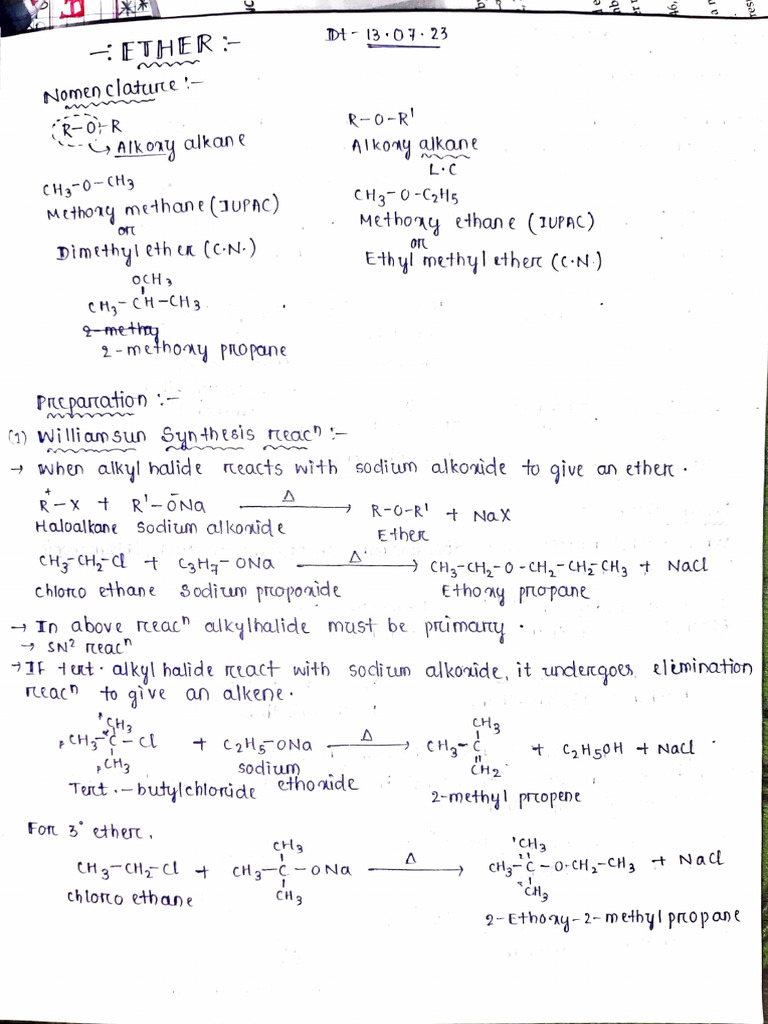 -: ETHER :-
Dt - 13.07.23
Nomenclature :-
R-O-R
↳ Alkoxy alkane
R-O-R'
Alkoxy alkane
L.C
CH3-O-CH3
Methoxy methane (IUPAC)
or
Dimethyl ether (C.N.)
CH3-O-C2H5
Methoxy ethane (IUPAC)
or
Ethyl methyl ether (C.N.)
OCH3
CH3-CH-CH3
2-methy
2-methoxy propane
Preparation :-
(1) Williamsun Synthesis reacn :-
→ When alkyl halide reacts with sodium alkoxide to give an ether.
R+-X + R'-ŌNa —Δ→ R-O-R' + NaX
Haloalkane Sodium alkoxide Ether
CH3-CH2-Cl + C3H7-ONa —Δ→ CH3-CH2-O-CH2-CH2-CH3 + NaCl
chloro ethane Sodium propoxide Ethoxy propane
→ In above reacn alkylhalide must be primary.
→ SN2 reacn
→ If tert. alkyl halide react with sodium alkoxide, it undergoes elimination
reacn to give an alkene.
CH3 CH3
CH3-C-Cl + C2H5-ONa —Δ→ CH3-C + C2H5OH + NaCl
CH3 sodium CH2
Tert.-butylchloride ethoxide 2-methyl propene
For 3° ether,
CH3 CH3
CH3-CH2-Cl + CH3-C-ONa —Δ→ CH3-C-O-CH2-CH3 + NaCl
chloro ethane CH3 CH3
2-Ethoxy-2-methyl propane